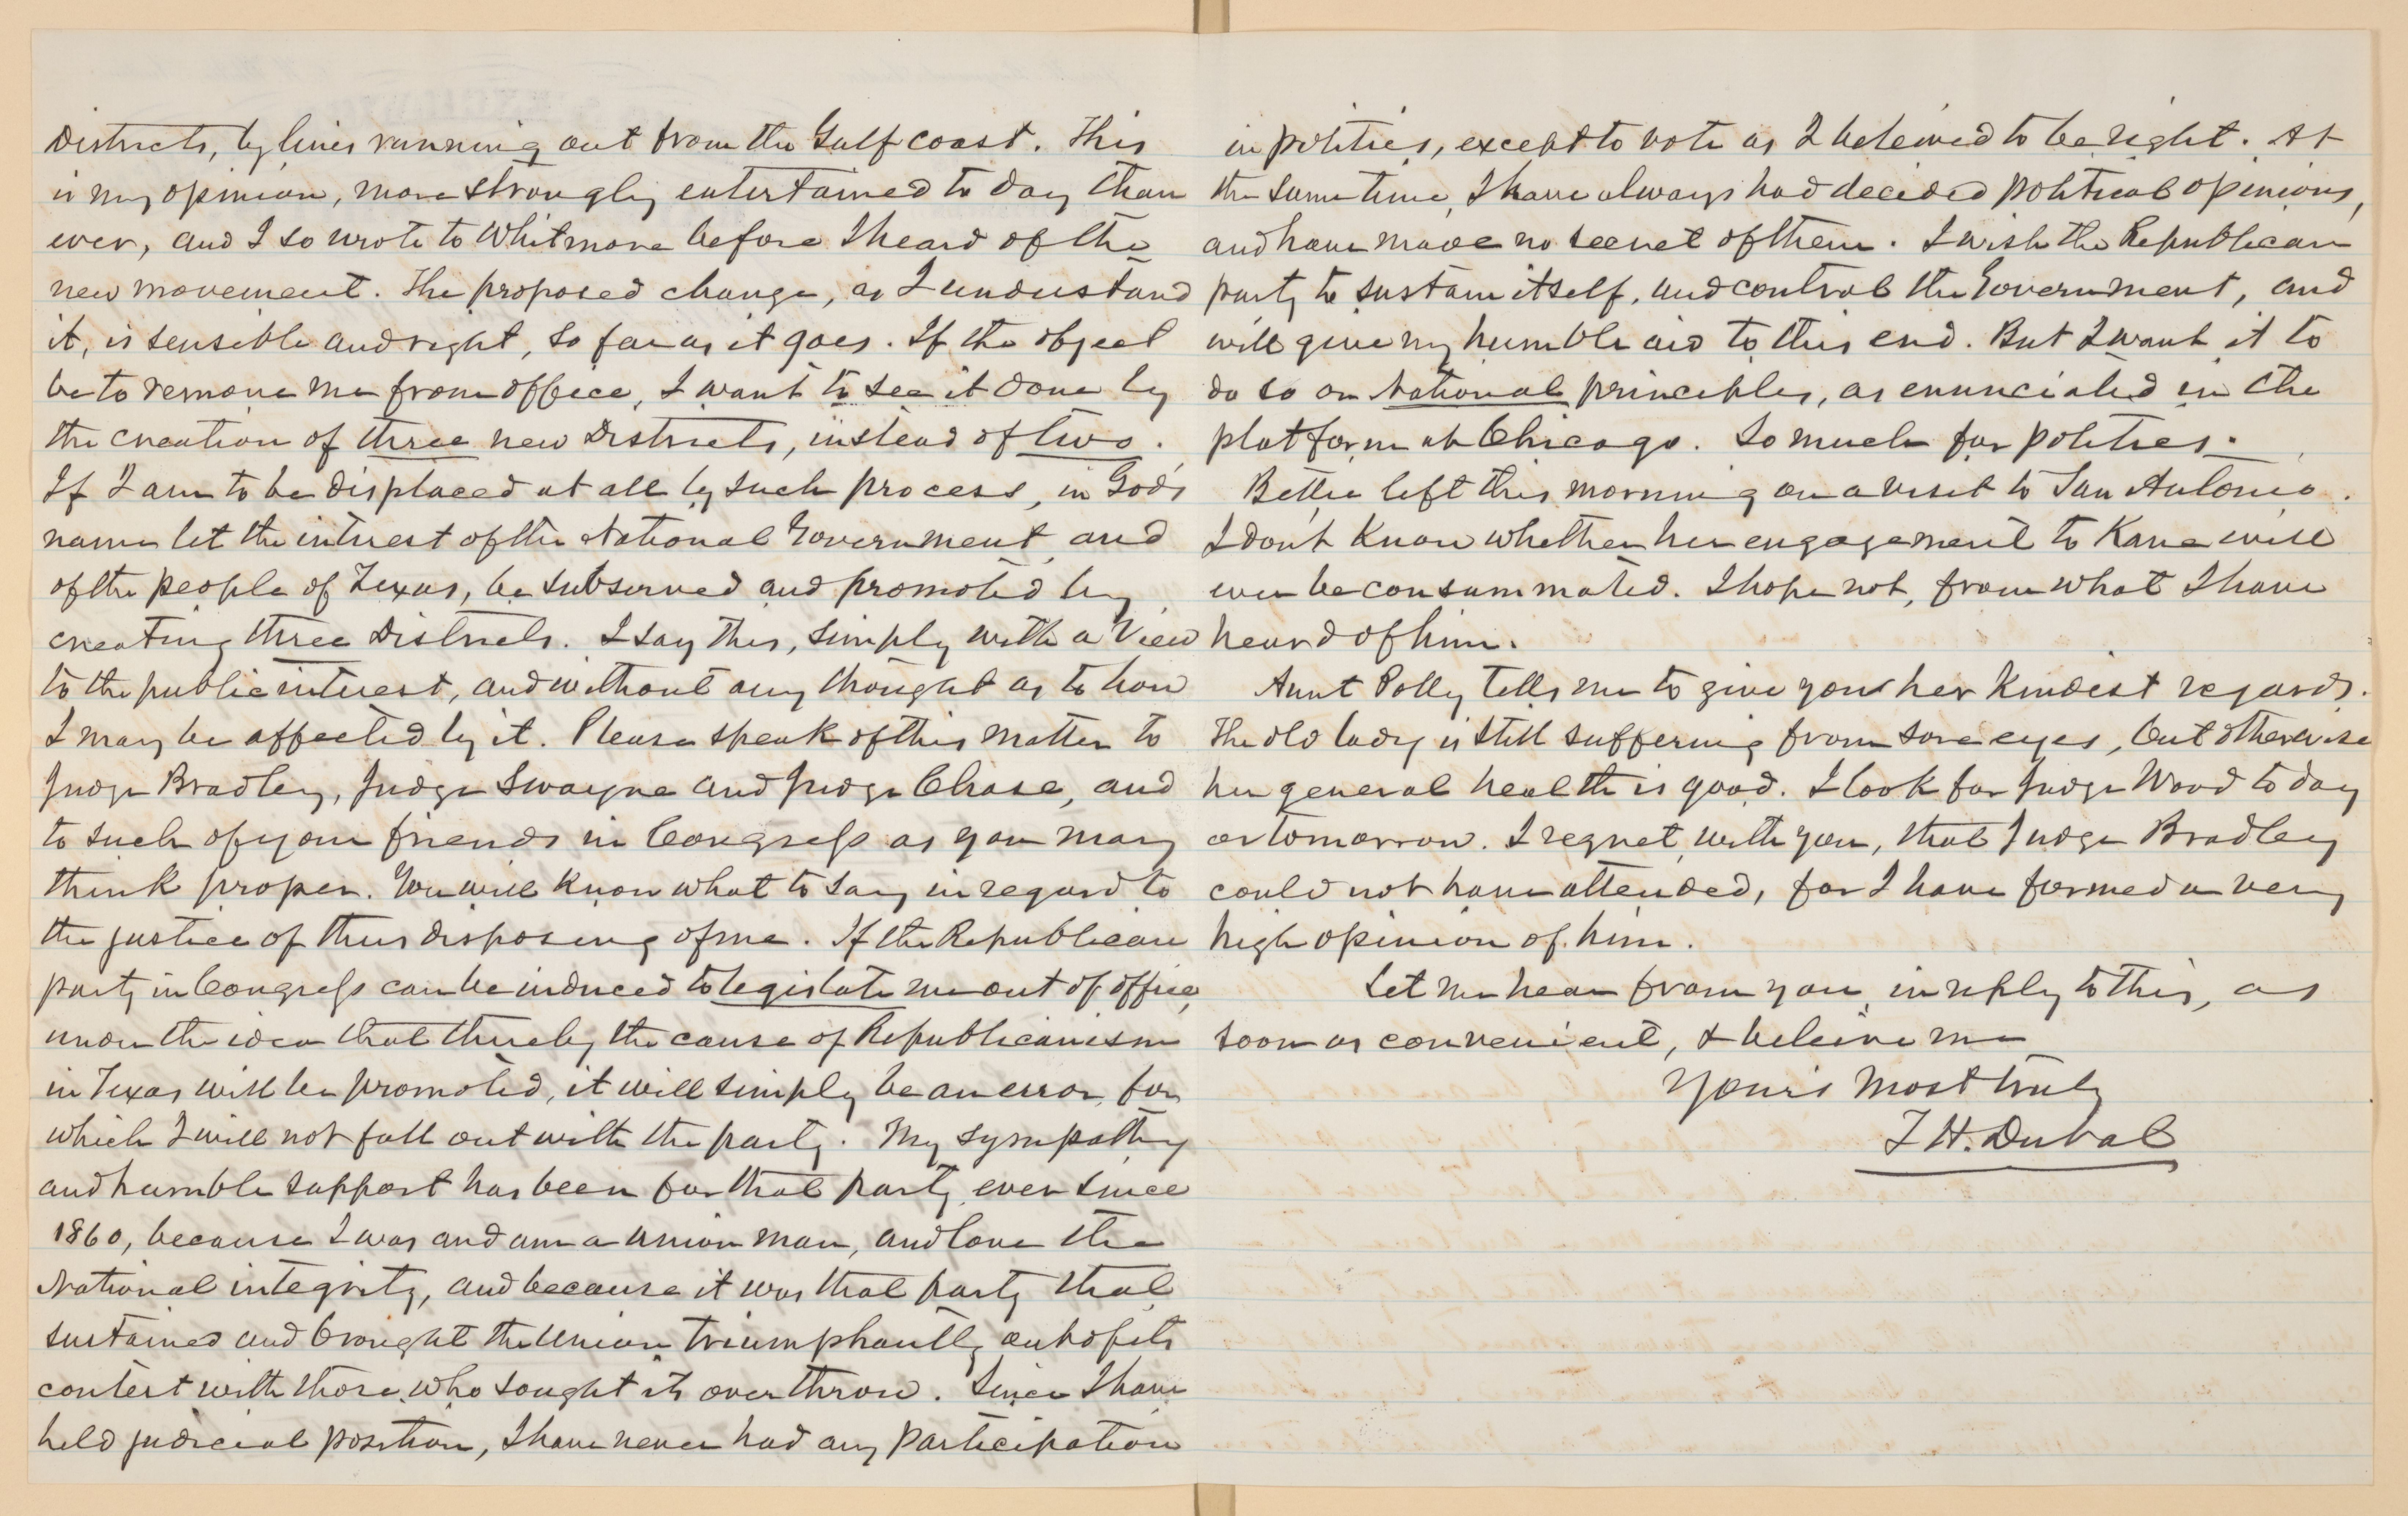 Districts, by lines running out from the Gulf coast. This
is my opinion, more strongly entertained to day than
ever, and I so wrote to Whitmore before I heard of the
new movement. The proposed change, as I understand
it, is sensible and right, so far as it goes. If the object
be to remove me from office, I want to see it done by
the creation of three new Districts, instead of two.
If I am to be displaced at all by such process, in God's
name let the interest of the National Government and
of the people of Texas, be subserved and promoted by
creating three Districts. I say this, simply with a view
to the public interest, and without any thought as to how
I may be affected by it. Please speak of this matter to
Judge Bradley, Judge Swayne and Judge Chase, and
to such of your friends in Congress as you may
think proper. You will know what to say in regard to
the justice of thus disposing of me. If the Republican
party in Congress can be induced to legislate me out of office,
under the idea that thereby the cause of Republicanism
in Texas will be promoted, it will simply be an error, for
which I will not fall out with the party. My sympathy
and humble support has been for that party ever since
1860, because I was and am a union man, and love the
National integrity, and because it was that party that
sustained and brought the Union triumphantly out of its
contest with those who sought its overthrow. Since I have
held judicial position, I have never had any participation
in politics, except to vote as I beleived to be right. At
the same time, I have always had decided political opinions,
and have made no secret of them. I wish the Republican
party to sustain itself, and control the Government, and
will give my humble aid to this end. But I want it to
do so on National principles, as enunciated in the
platform at Chicago. So much for politics.
Bettie left this morning on a visit to San Antonio.
I don't know whether her engagement to Kane will
ever be consummated. I hope not, from what I have
heard of him.
Aunt Polly tells me to give you her kindest regards.
The old lady is still suffering from sore eyes, but otherwise
her general health is good. I look for Judge Wood to day
or tomorrow. I regret, with you, that Judge Bradley
could not have attended, for I have formed a very
high opinion of him.
Let me hear from you, in reply to this, as
soon as convenient, & beleive me
Yours most truly
T H. Duval